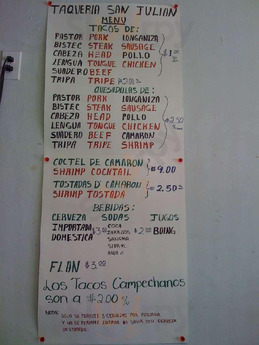 TAQUERIA SAN JULIAN
MENU
TACOS DE:
PASTOR PORK LONGANIZA
BISTEC STEAK SAUSAGE
CABEZA HEAD POLLO
LENGUA TONGUE CHICKEN
SUADERO BEEF
TRIPA TRIPE
QUESADILLAS DE:
PASTOR PORK LONGANIZA
BISTEC STEAK SAUSAGE
CABEZA HEAD POLLO
LENGUA TONGUE CHICKEN
SUADERO BEEF CAMARON
TRIPA TRIPE SHRIMP
$2.50
COCTEL DE CAMARON
SHRIMP COCKTAIL $9.00
TOSTADAS D' CAMARON
SHRIMP TOSTADA $2.50
BEBIDAS:
CERVEZA SODAS JUGOS
IMPORTADA $3.00 COCA $2.00 BOING
DOMESTICA JARRITOS
SANGRIA
FLAN $3.00
Los Tacos Campechanos
son a $2.00
NOTA: